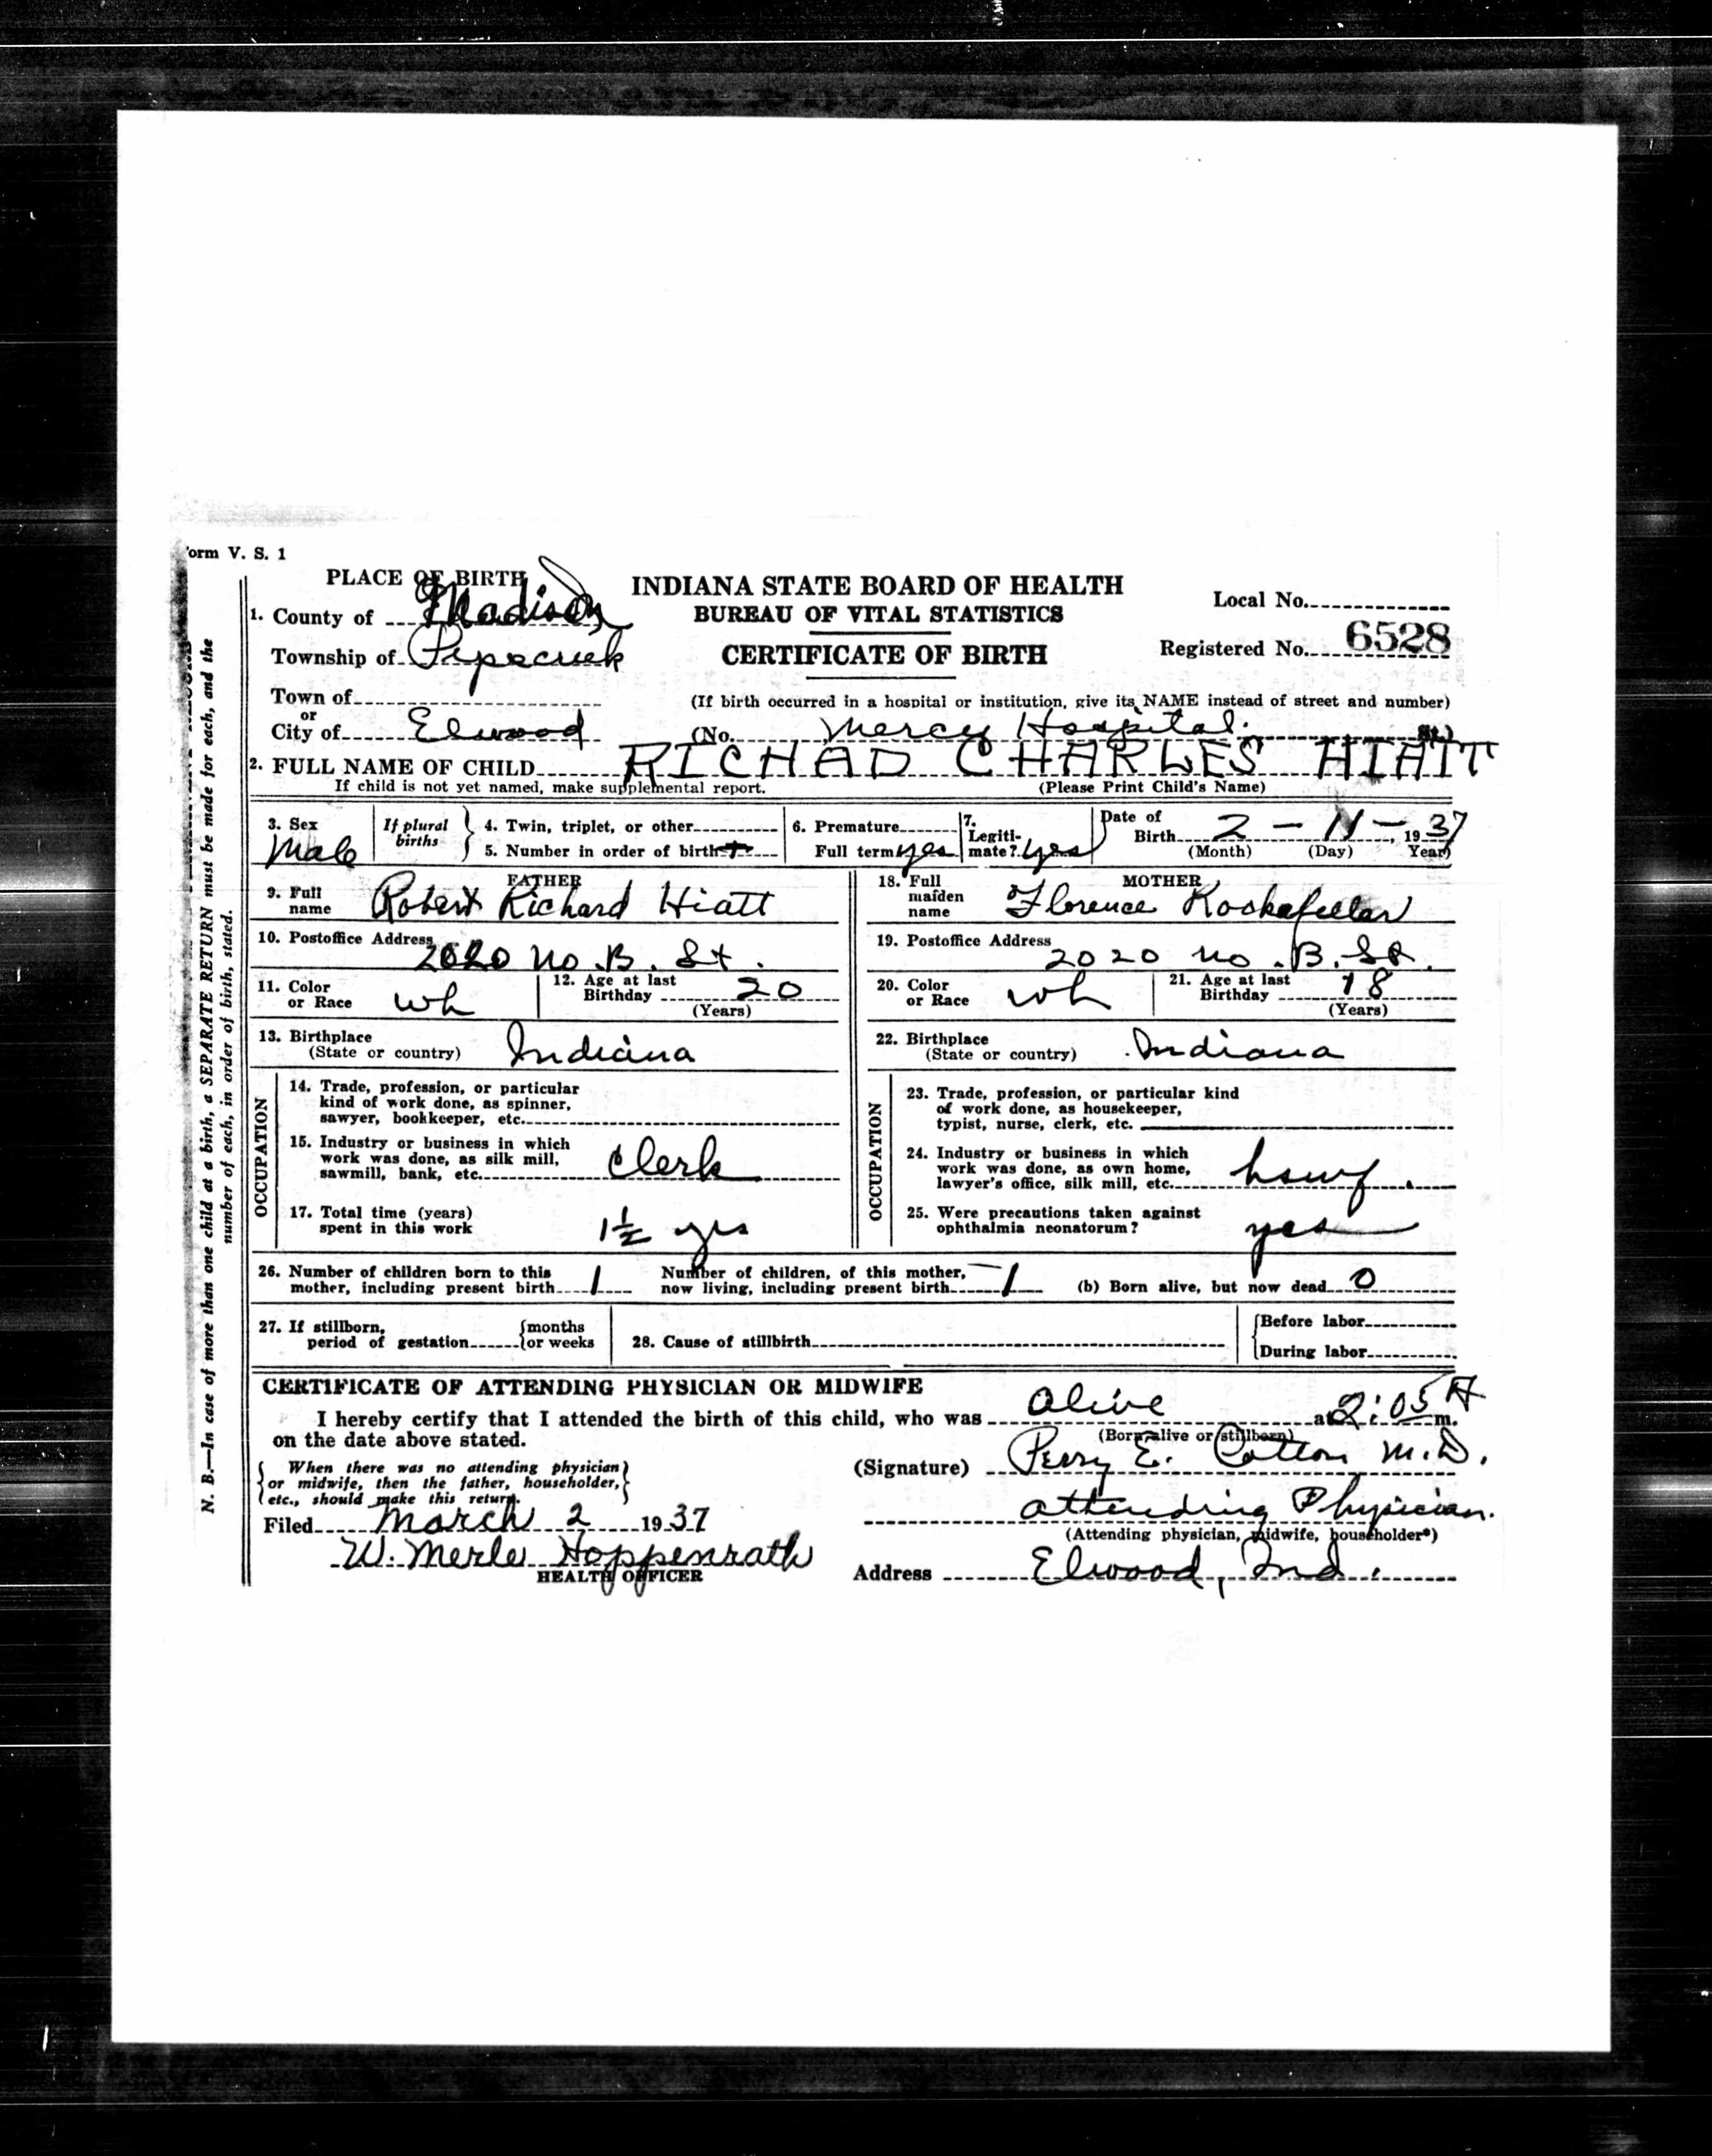 orm V. S. 1
PLACE OF BIRTH
1. County of Madison
Township of Pipecreek
Town of
or
City of Elwood
INDIANA STATE BOARD OF HEALTH
BUREAU OF VITAL STATISTICS
CERTIFICATE OF BIRTH
Local No.
Registered No. 6528
(If birth occurred in a hospital or institution, give its NAME instead of street and number)
(No. Mercy Hospital. St.)
2. FULL NAME OF CHILD RICHAD CHARLES HIATT
If child is not yet named, make supplemental report. (Please Print Child's Name)
3. Sex
Male
If plural
births
4. Twin, triplet, or other
5. Number in order of birth
6. Premature
Full term yes
7.
Legiti-
mate? yes
Date of
Birth 2 - 11 -, 1937
(Month) (Day) Year)
FATHER
9. Full
name Robert Richard Hiatt
10. Postoffice Address 2020 No. B. St.
11. Color
or Race wh
12. Age at last
Birthday 20
(Years)
13. Birthplace
(State or country) Indiana
OCCUPATION
14. Trade, profession, or particular
kind of work done, as spinner,
sawyer, bookkeeper, etc.
15. Industry or business in which
work was done, as silk mill,
sawmill, bank, etc. Clerk
17. Total time (years)
spent in this work 1½ yrs
MOTHER
18. Full
maiden
name Florence
19. Postoffice Address 2020 No. B. St.
20. Color
or Race wh
21. Age at last
Birthday 18
(Years)
22. Birthplace
(State or country) Indiana
OCCUPATION
23. Trade, profession, or particular kind
of work done, as housekeeper,
typist, nurse, clerk, etc.
24. Industry or business in which
work was done, as own home,
lawyer's office, silk mill, etc. hswf.
25. Were precautions taken against
ophthalmia neonatorum? yes
26. Number of children born to this
mother, including present birth 1
Number of children, of this mother,
now living, including present birth 1
(b) Born alive, but now dead 0
27. If stillborn,
period of gestation {months
{or weeks
28. Cause of stillbirth
{Before labor
{During labor
CERTIFICATE OF ATTENDING PHYSICIAN OR MIDWIFE
I hereby certify that I attended the birth of this child, who was Alive at 2:05 A m.
(Born alive or stillborn)
on the date above stated.
{When there was no attending physician}
{or midwife, then the father, householder,}
{etc., should make this return.}
(Signature) Perry E. Cotton M.D.
attending Physician.
(Attending physician, midwife, householder*)
Filed March 2 1937
W. Merle Hoppenrath
HEALTH OFFICER
Address Elwood, Ind.
N. B.—In case of more than one child at a birth, a SEPARATE RETURN must be made for each, and the
number of each, in order of birth, stated.